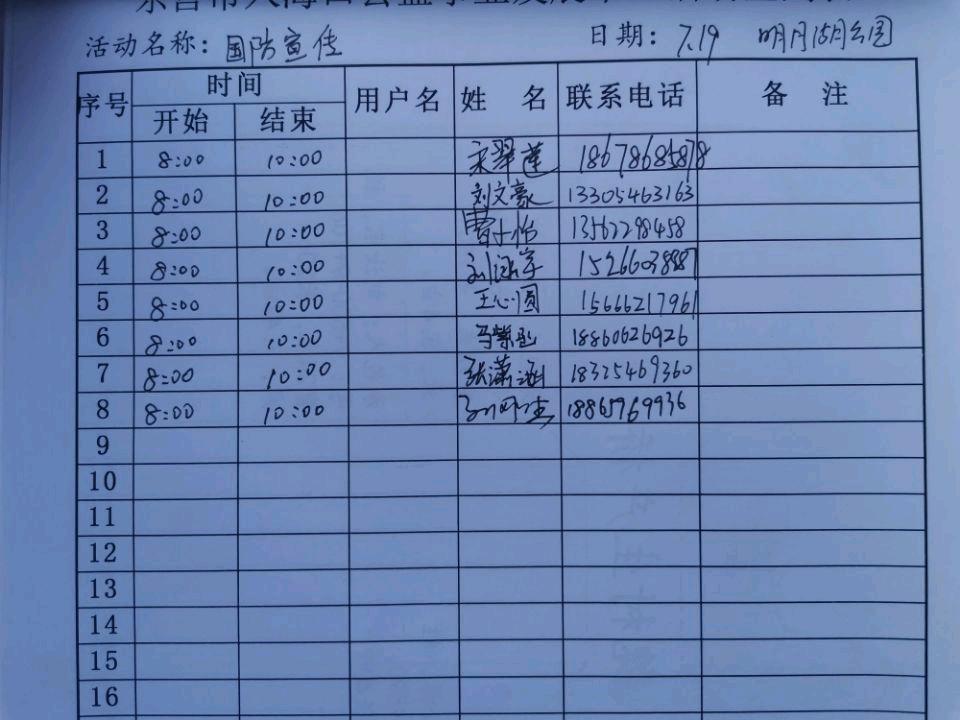 活动名称：国防宣传 日期：7.19 明月湖公园
序号 时间 用户名 姓 名 联系电话 备 注
开始 结束
1 8:00 10:00 宋翠莲 18678685878
2 8:00 10:00 刘文豪 13305463163
3 8:00 10:00 曹小怡 13562298458
4 8:00 10:00 15266038887
5 8:00 10:00 王心圆 15666217961
6 8:00 10:00 马紫 18860626926
7 8:00 10:00 张潇涵 18325469360
8 8:00 10:00 18865969936
9
10
11
12
13
14
15
16